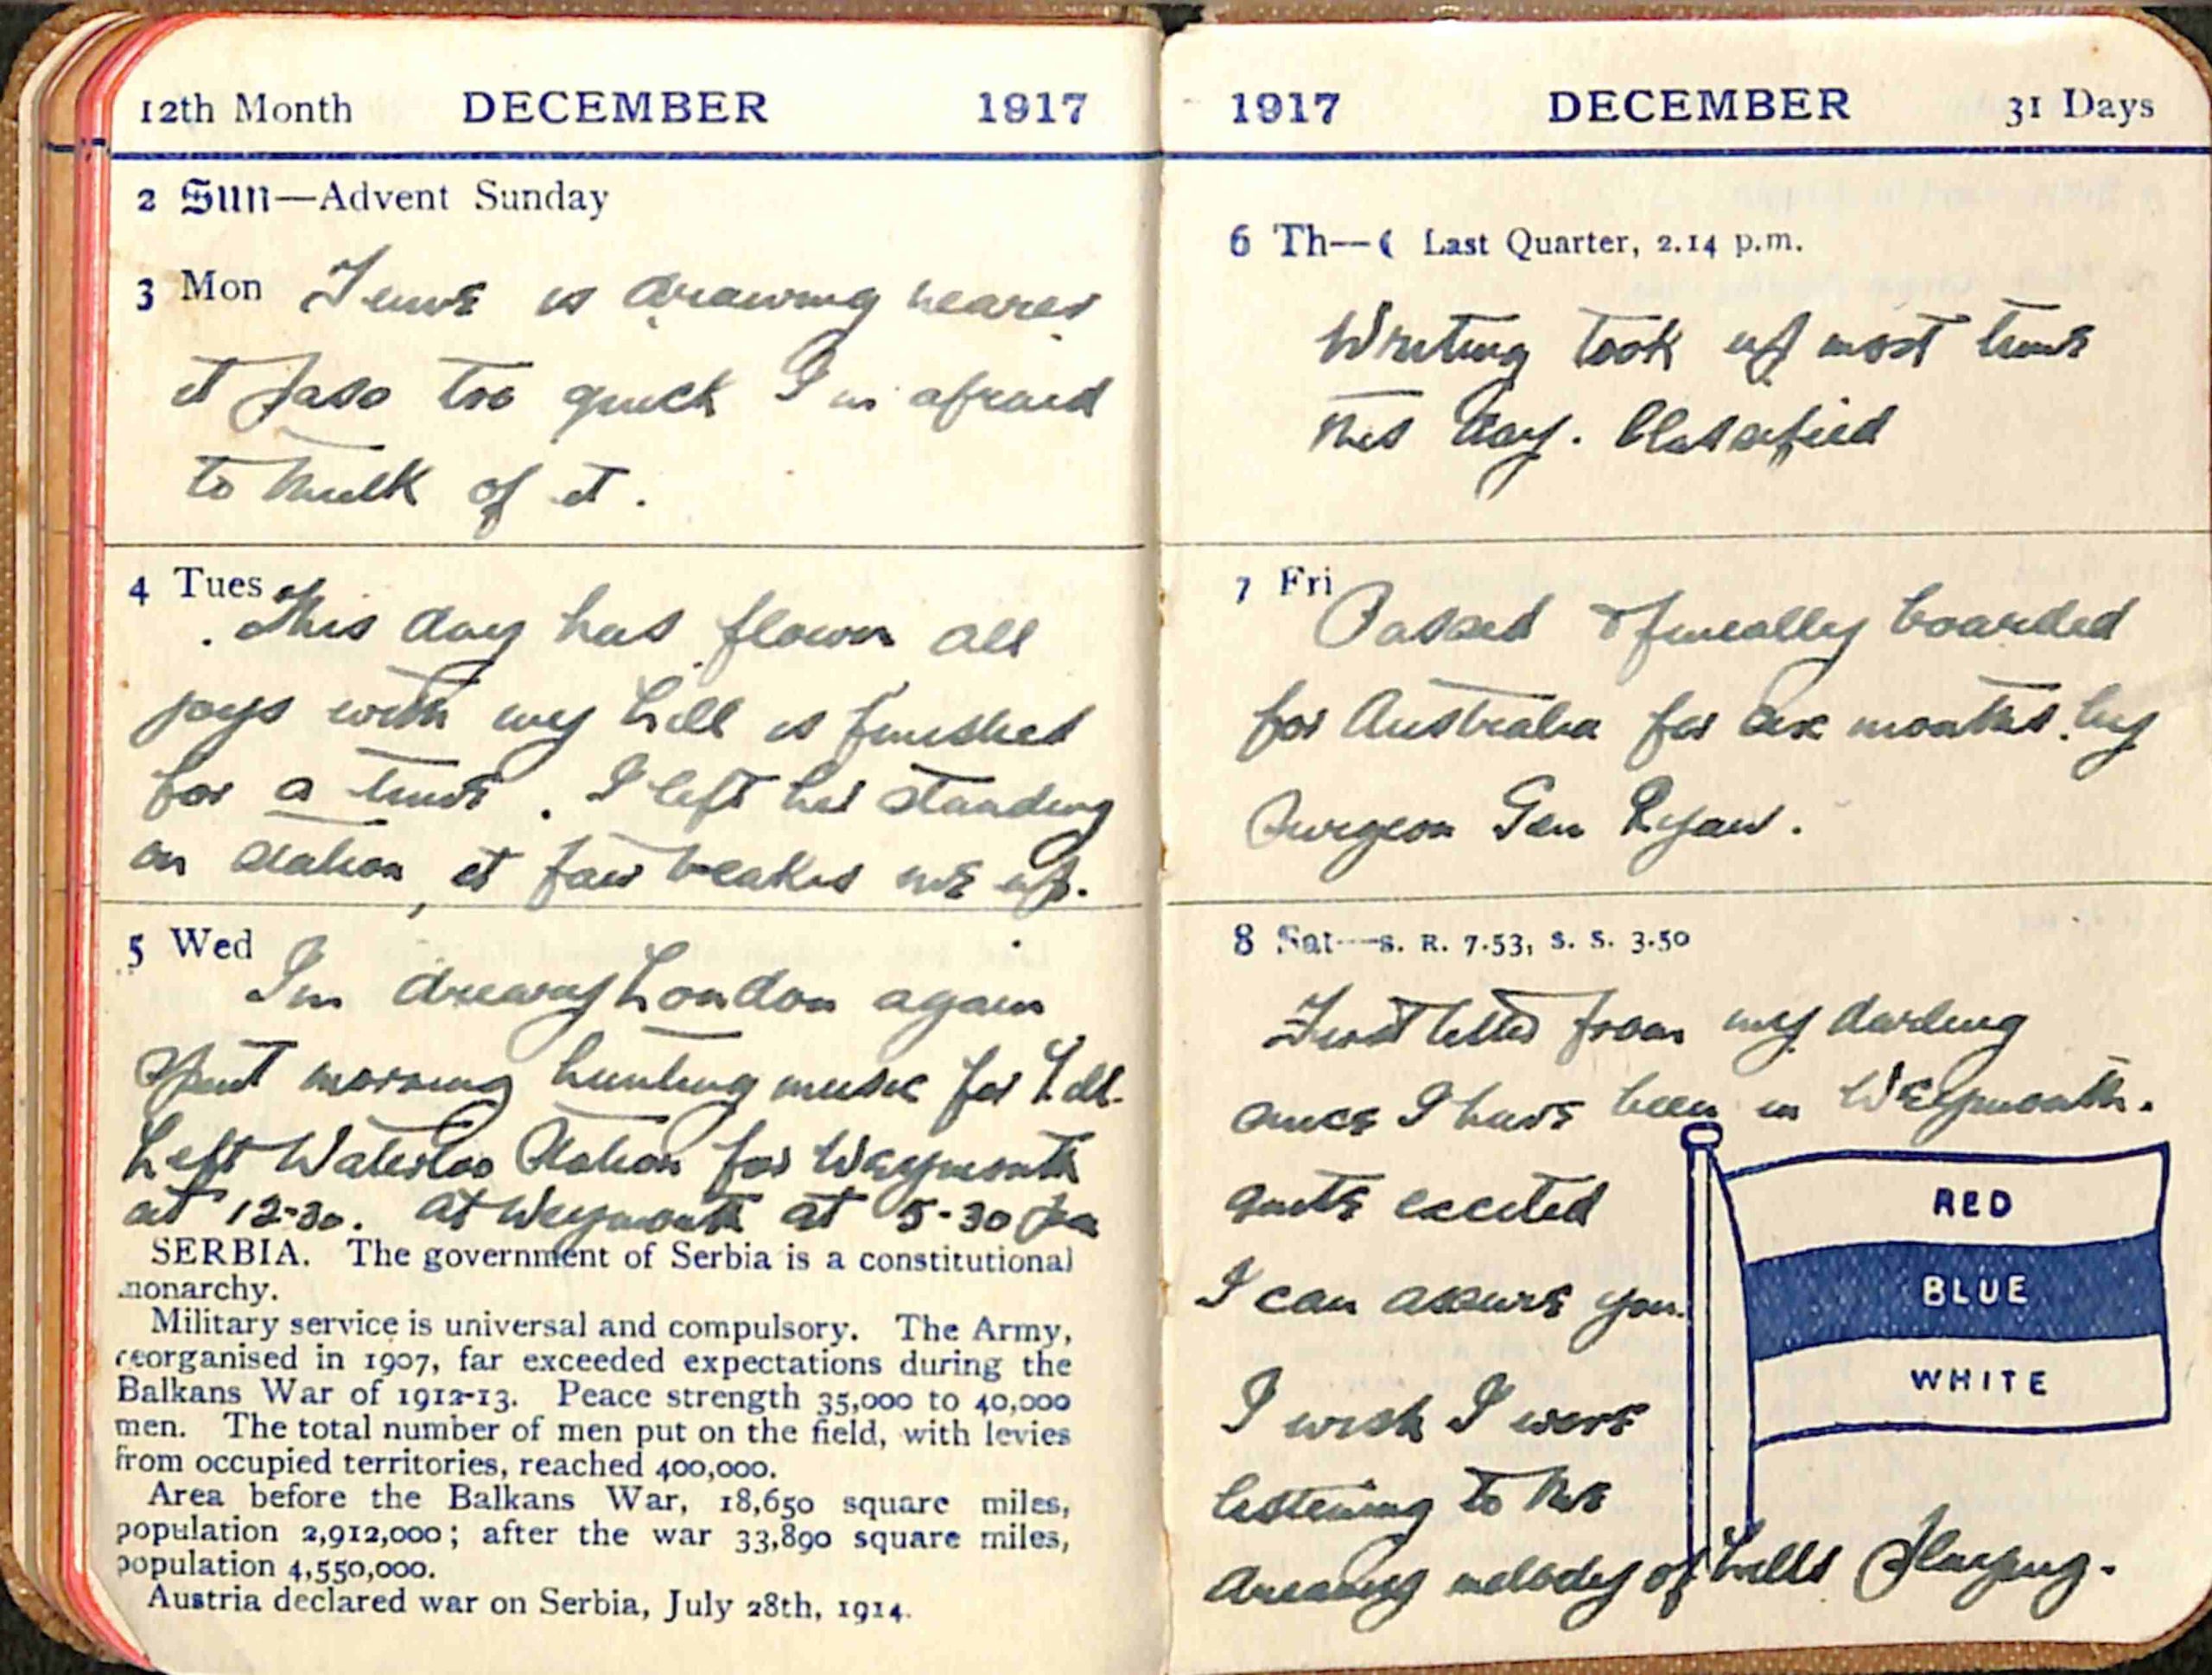 12th Month DECEMBER 1917
2 Sun—Advent Sunday
3 Mon Time is drawing nearer
it pass too quick I'm afraid
to think of it.
4 Tues This day has flown all
joys with my Lill is finished
for a time. I left her standing
on station, it fair breakes me up.
5 Wed
I'm dreamy London again
Spent morning hunting music for Lill.
Left Waterloo Station for Weymouth
at 12-30. At Weymouth at 5-30 pm
SERBIA. The government of Serbia is a constitutional
monarchy.
Military service is universal and compulsory. The Army,
reorganised in 1907, far exceeded expectations during the
Balkans War of 1912-13. Peace strength 35,000 to 40,000
men. The total number of men put on the field, with levies
from occupied territories, reached 400,000.
Area before the Balkans War, 18,650 square miles,
population 2,912,000; after the war 33,890 square miles,
population 4,550,000.
Austria declared war on Serbia, July 28th, 1914.
1917 DECEMBER 31 Days
6 Th—☾ Last Quarter, 2.14 p.m.
Writing took up most time
this day. Classified
7 Fri
Passed & finally boarded
for Australia for six months by
Surgeon Gen Ryan.
8 Sat—S. R. 7.53, S. S. 3.50
First letter from my darling
since I have been in Weymouth.
quite excited
I can assure you.
I wish I were
listening to the
dreamy melody of Lills playing.
RED
BLUE
WHITE